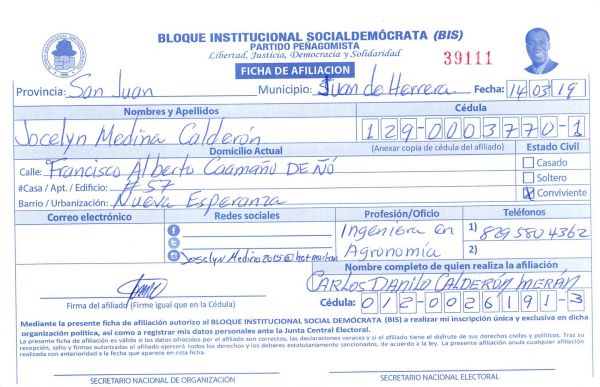 BLOQUE INSTITUCIONAL SOCIALDEMÓCRATA (BIS)
PARTIDO PEÑAGOMISTA
Libertad, Justicia, Democracia y Solidaridad
39111
FICHA DE AFILIACION
Provincia: San Juan Municipio: Juan de Herrera Fecha: 14 03 19
Nombres y Apellidos
Cédula
Jocelyn Medina Calderón
129-0003770-1
Domicilio Actual
(Anexar copia de cédula del afiliado)
Estado Civil
Calle: Francisco Alberto Caamaño DE ÑÓ
Casado
#Casa / Apt. / Edificio: # 57
Soltero
Barrio / Urbanización: Nueva Esperanza
X Conviviente
Correo electrónico
Redes sociales
Profesión/Oficio
Teléfonos
Ingeniera en Agronomía
1) 829 580 4362
2)
Nombre completo de quien realiza la afiliación
CARLOS DANILO CALDERÓN MERÁN
Cédula: 012-0026191-3
Firma del afiliado (Firme igual que en la Cédula)
Mediante la presente ficha de afiliación autorizo al BLOQUE INSTITUCIONAL SOCIAL DEMÓCRATA (BIS) a realizar mi inscripción única y exclusiva en dicha
organización política, así como a registrar mis datos personales ante la Junta Central Electoral.
La presente afiliación es válida si los datos ofrecidos por el afiliado son correctos, las declaraciones veraces y si el afiliado tiene el disfrute de sus derechos civiles y políticos. Tras su
recepción, sello y firmas autorizadas el afiliado ejercerá todos los derechos y los deberes estatutariamente sancionados, de acuerdo a la ley. La presente afiliación anula cualquier afiliación
realizada con anterioridad a la fecha que aparece en esta ficha.
SECRETARIO NACIONAL DE ORGANIZACIÓN
SECRETARIO NACIONAL ELECTORAL